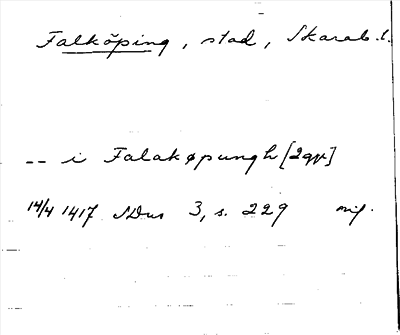 Falköping, stad, Skarab. l.
-- i Falakøpungh [2 ggr]
14/4 1417 SDns 3, s. 229 orig.